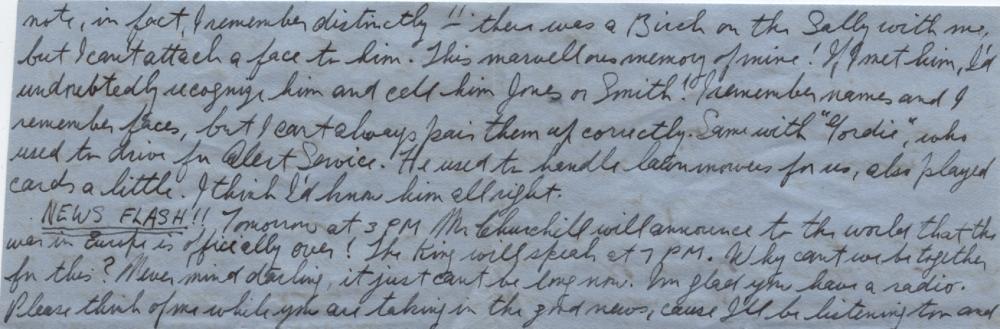 note, in fact, I remember distinctly !! there was a Birch on the Sally with me,
but I can't attach a face to him. This marvellous memory of mine! If I met him, I'd
undoubtedly recognize him and call him Jones or Smith! I remember names and I
remember faces, but I can't always pair them up correctly. Same with "Gordie", who
used to drive for Alert Service. He used to handle lawnmowers for us, also played
cards a little. I think I'd know him all right.
NEWS FLASH!! Tomorrow at 3 PM Mr Churchill will announce to the world that the
war in Europe is officially over! The King will speak at 7 PM. Why can't we be together
for this? Never mind darling, it just can't be long now. I'm glad you have a radio.
Please think of me while you are taking in the good news, cause I'll be listening too and